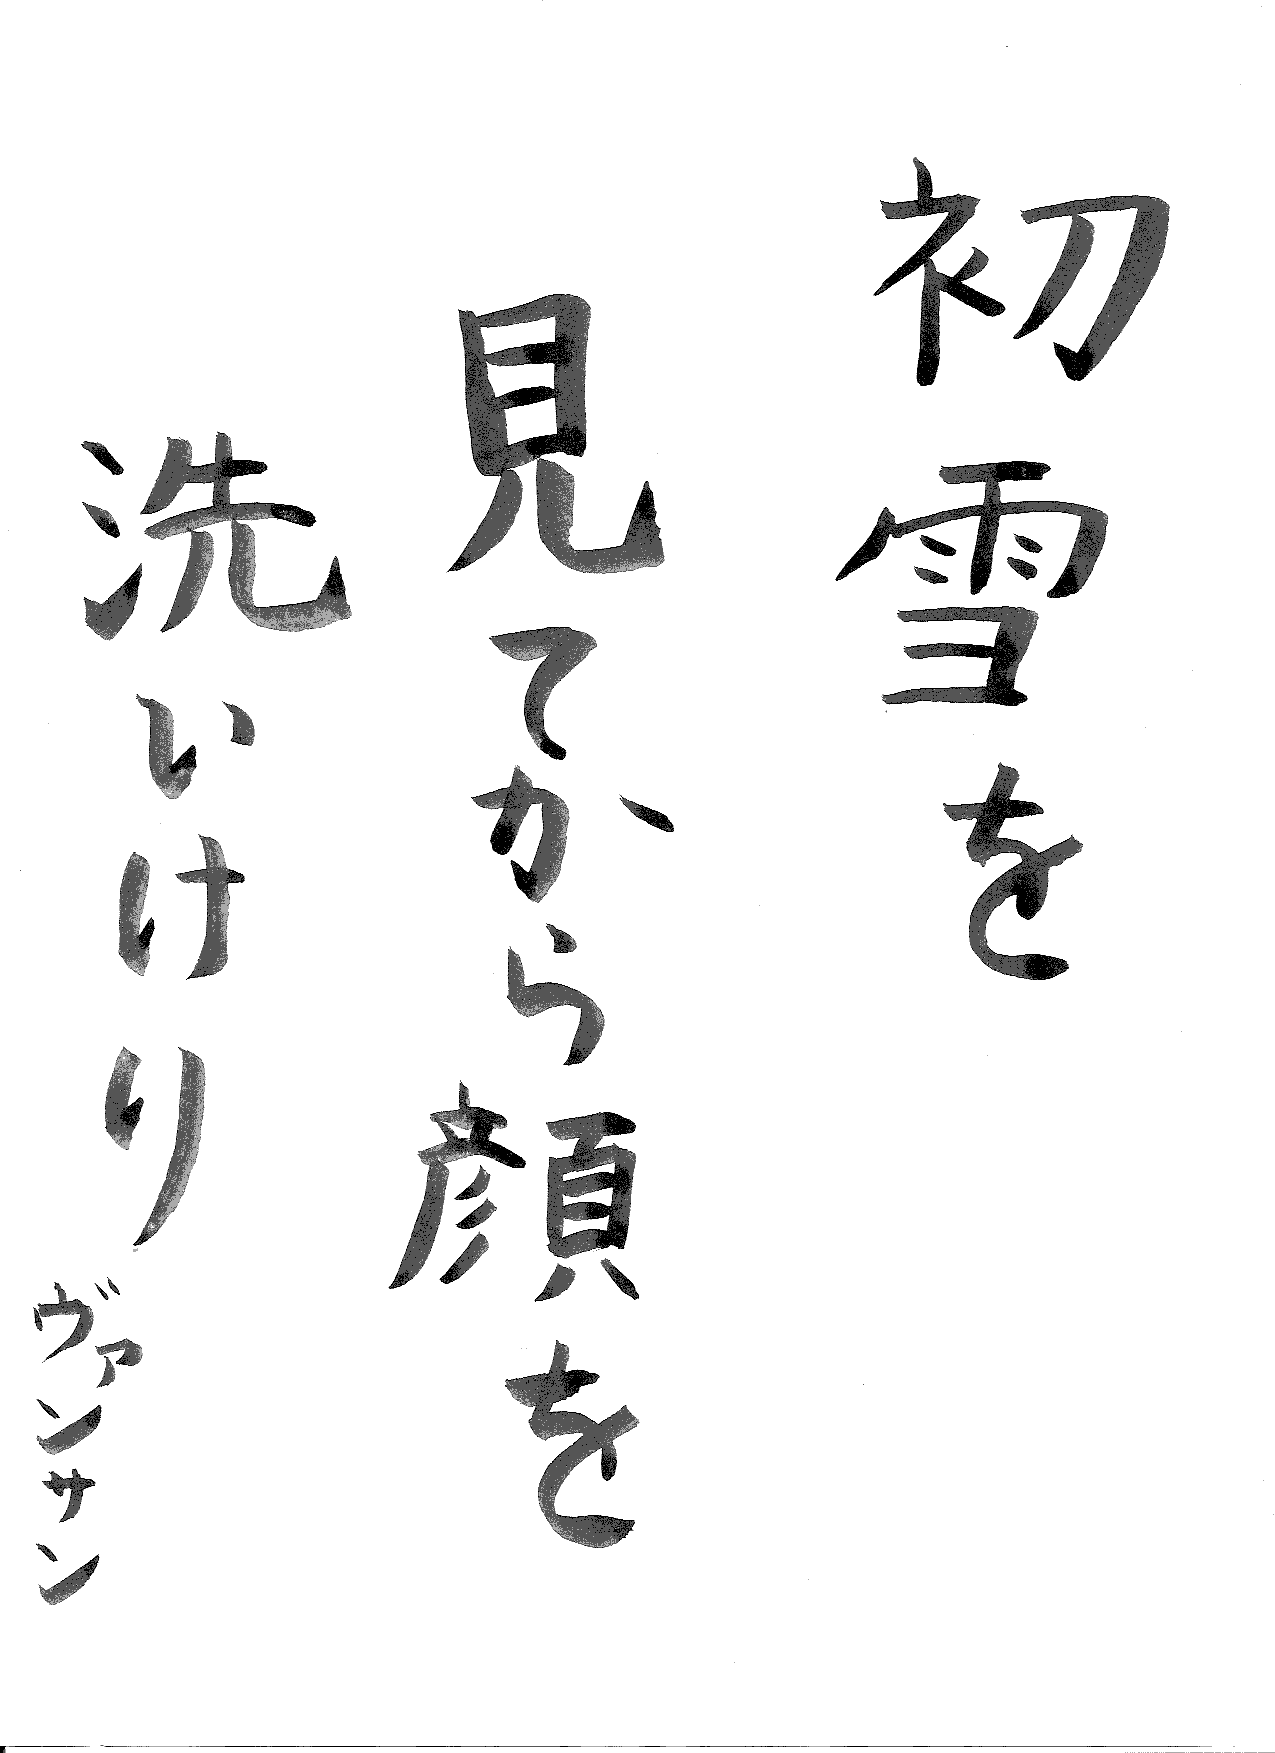 初雪を
見てから顔を
洗いけり
ヴァンサン